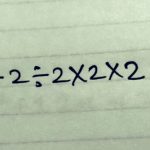 -2÷2×2×2